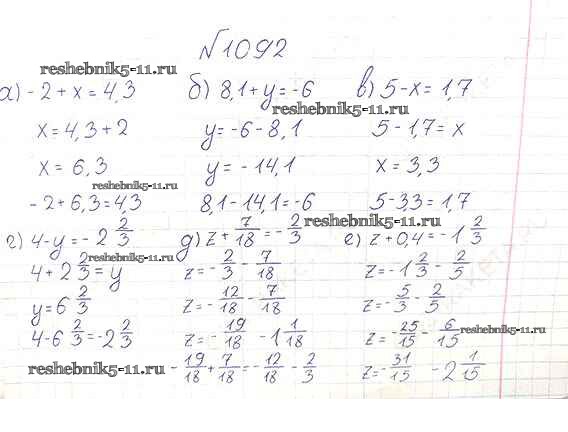 №1092
reshebnik5-11.ru
а) -2 + x = 4,3 б) 8,1 + y = -6 в) 5 - x = 1,7
reshebnik5-11.ru
x = 4,3 + 2 y = -6 - 8,1 5 - 1,7 = x
x = 6,3 y = -14,1 x = 3,3
reshebnik5-11.ru
-2 + 6,3 = 4,3 8,1 - 14,1 = -6 5 - 33 = 1,7
reshebnik5-11.ru
г) 4 - y = -2 2/3 д) z + 7/18 = -2/3 е) z + 0,4 = -1 2/3
reshebnik5-11.ru
4 + 2 2/3 = y z = -2/3 - 7/18 z = -1 2/3 - 2/5
y = 6 2/3 z = -12/18 - 7/18 z = -5/3 - 2/5
4 - 6 2/3 = -2 2/3 z = -19/18 -1 1/18 z = -25/15 - 6/15
reshebnik5-11.ru
reshebnik5-11.ru
-19/18 + 7/18 = -12/18 - 2/3 z = -31/15 -2 1/15